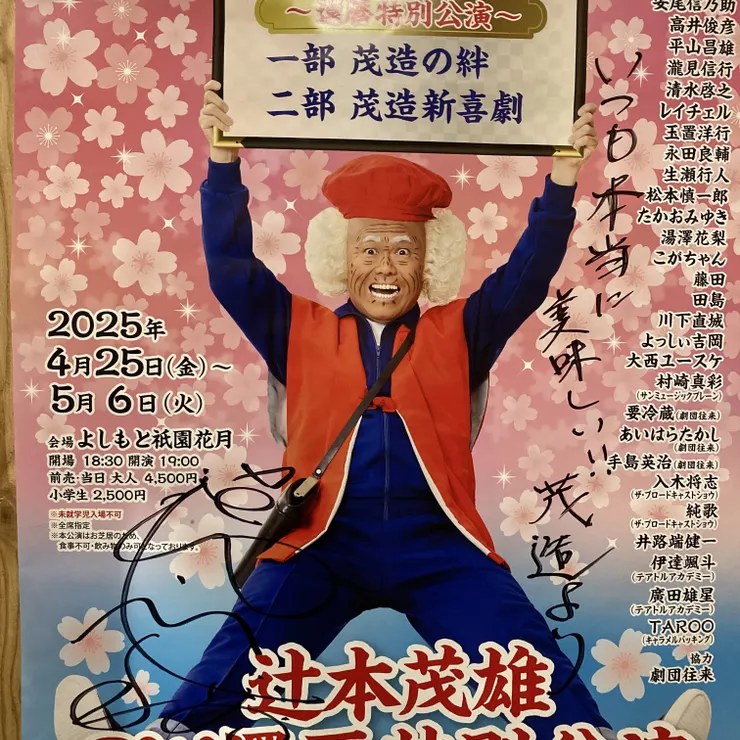 ～還暦特別公演～
一部 茂造の絆
二部 茂造新喜劇
2025年
4月25日(金)～
5月6日(火)
会場 よしもと祇園花月
開場 18:30 開演 19:00
前売・当日 大人 4,500円
小学生 2,500円
※未就学児入場不可
※全席指定
※本公演はお芝居のため、
食事不可・飲み物のみ可となっております。
安尾信乃助
高井俊彦
平山昌雄
瀧見信行
清水啓之
レイチェル
玉置洋行
永田良輔
生瀬行人
松本慎一郎
たかおみゆき
湯澤花梨
こがちゃん
藤田
田島
川下直城
よっしぃ吉岡
大西ユースケ
村崎真彩
(サンミュージックブレーン)
要冷蔵(劇団往来)
あいはらたかし
(劇団往来)
手島英治(劇団往来)
入木将志
(ザ・ブロードキャストショウ)
純歌
(ザ・ブロードキャストショウ)
井路端健一
伊達颯斗
(テアトルアカデミー)
廣田雄星
(テアトルアカデミー)
TAROO
(キャラメルパッキング)
協力
劇団往来
いつも本当に
美味しい!!
茂造より
辻本茂雄